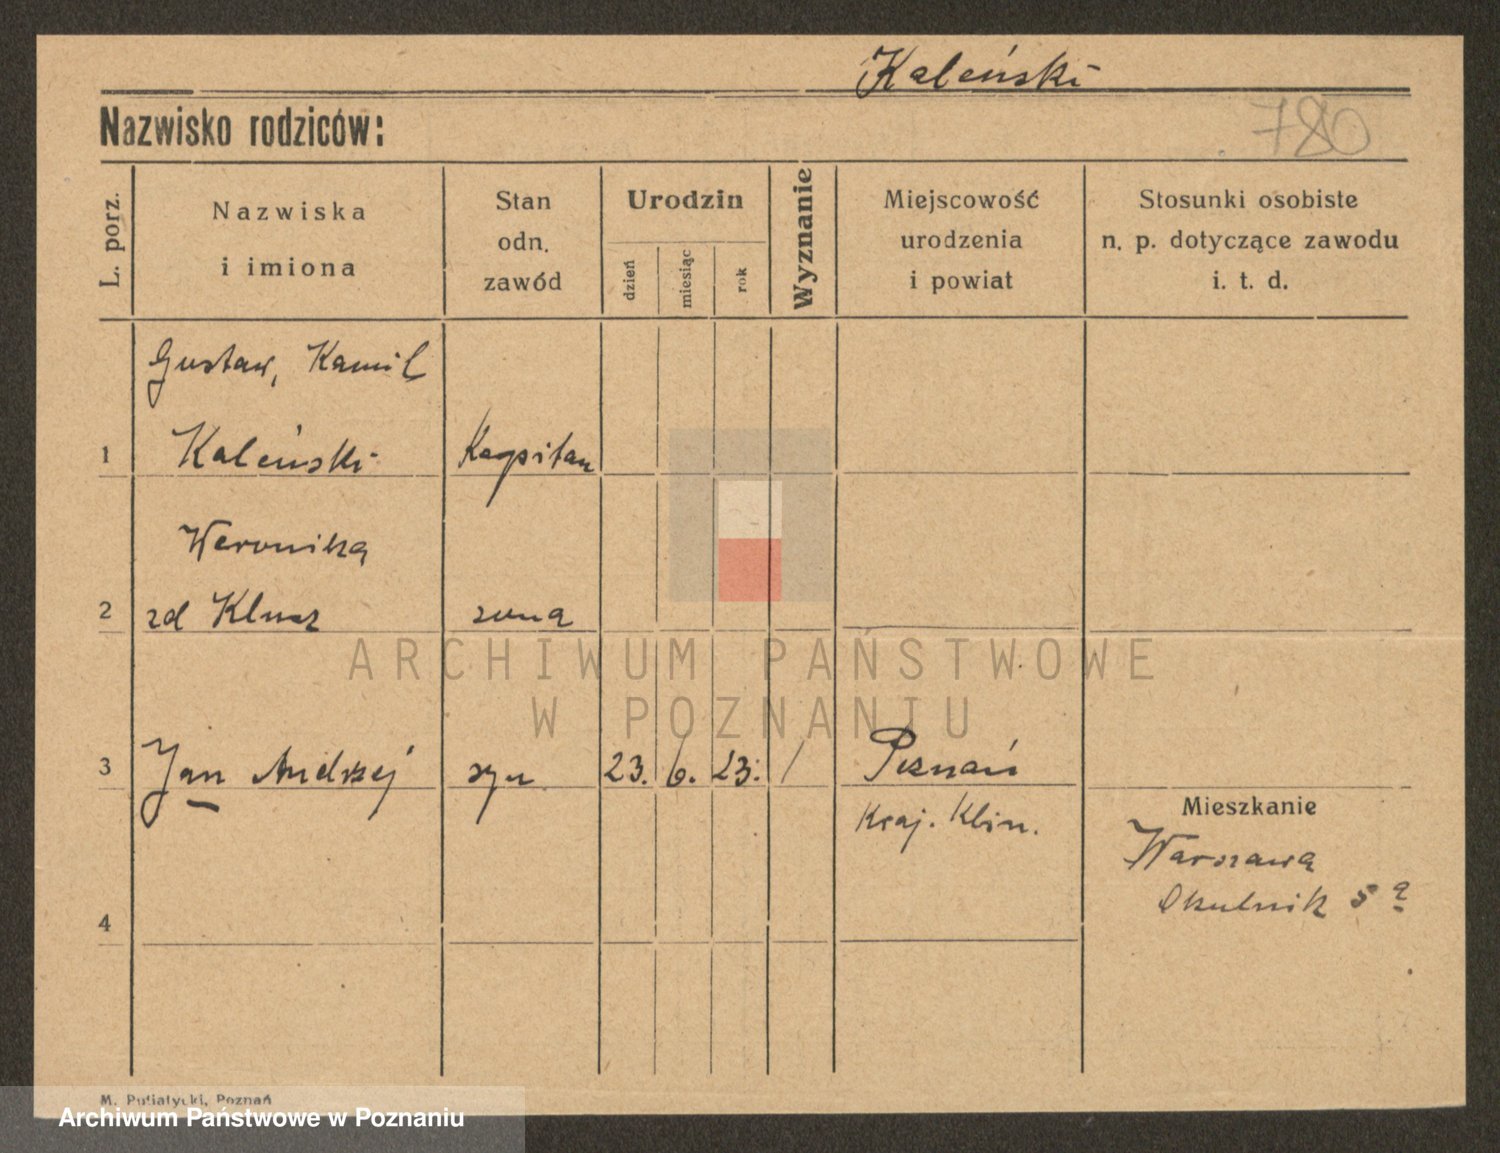 Kaleński
Nazwisko rodziców:
780
L. porz.
Nazwiska
i imiona
Stan
odn.
zawód
Urodzin
dzień
miesiąc
rok
Wyznanie
Miejscowość
urodzenia
i powiat
Stosunki osobiste
n. p. dotyczące zawodu
i. t. d.
Gustaw, Kamil
1 Kaleński Kapitan
Weronika
2 zd żona
ARCHIWUM PAŃSTWOWE
W POZNANIU
3 Jan Andrzej syn 23. 6. 23. / Poznań
Kraj. Klin.
Mieszkanie
Warszawa
Okulnik 5 a
4
M. Putiatycki, Poznań
Archiwum Państwowe w Poznaniu